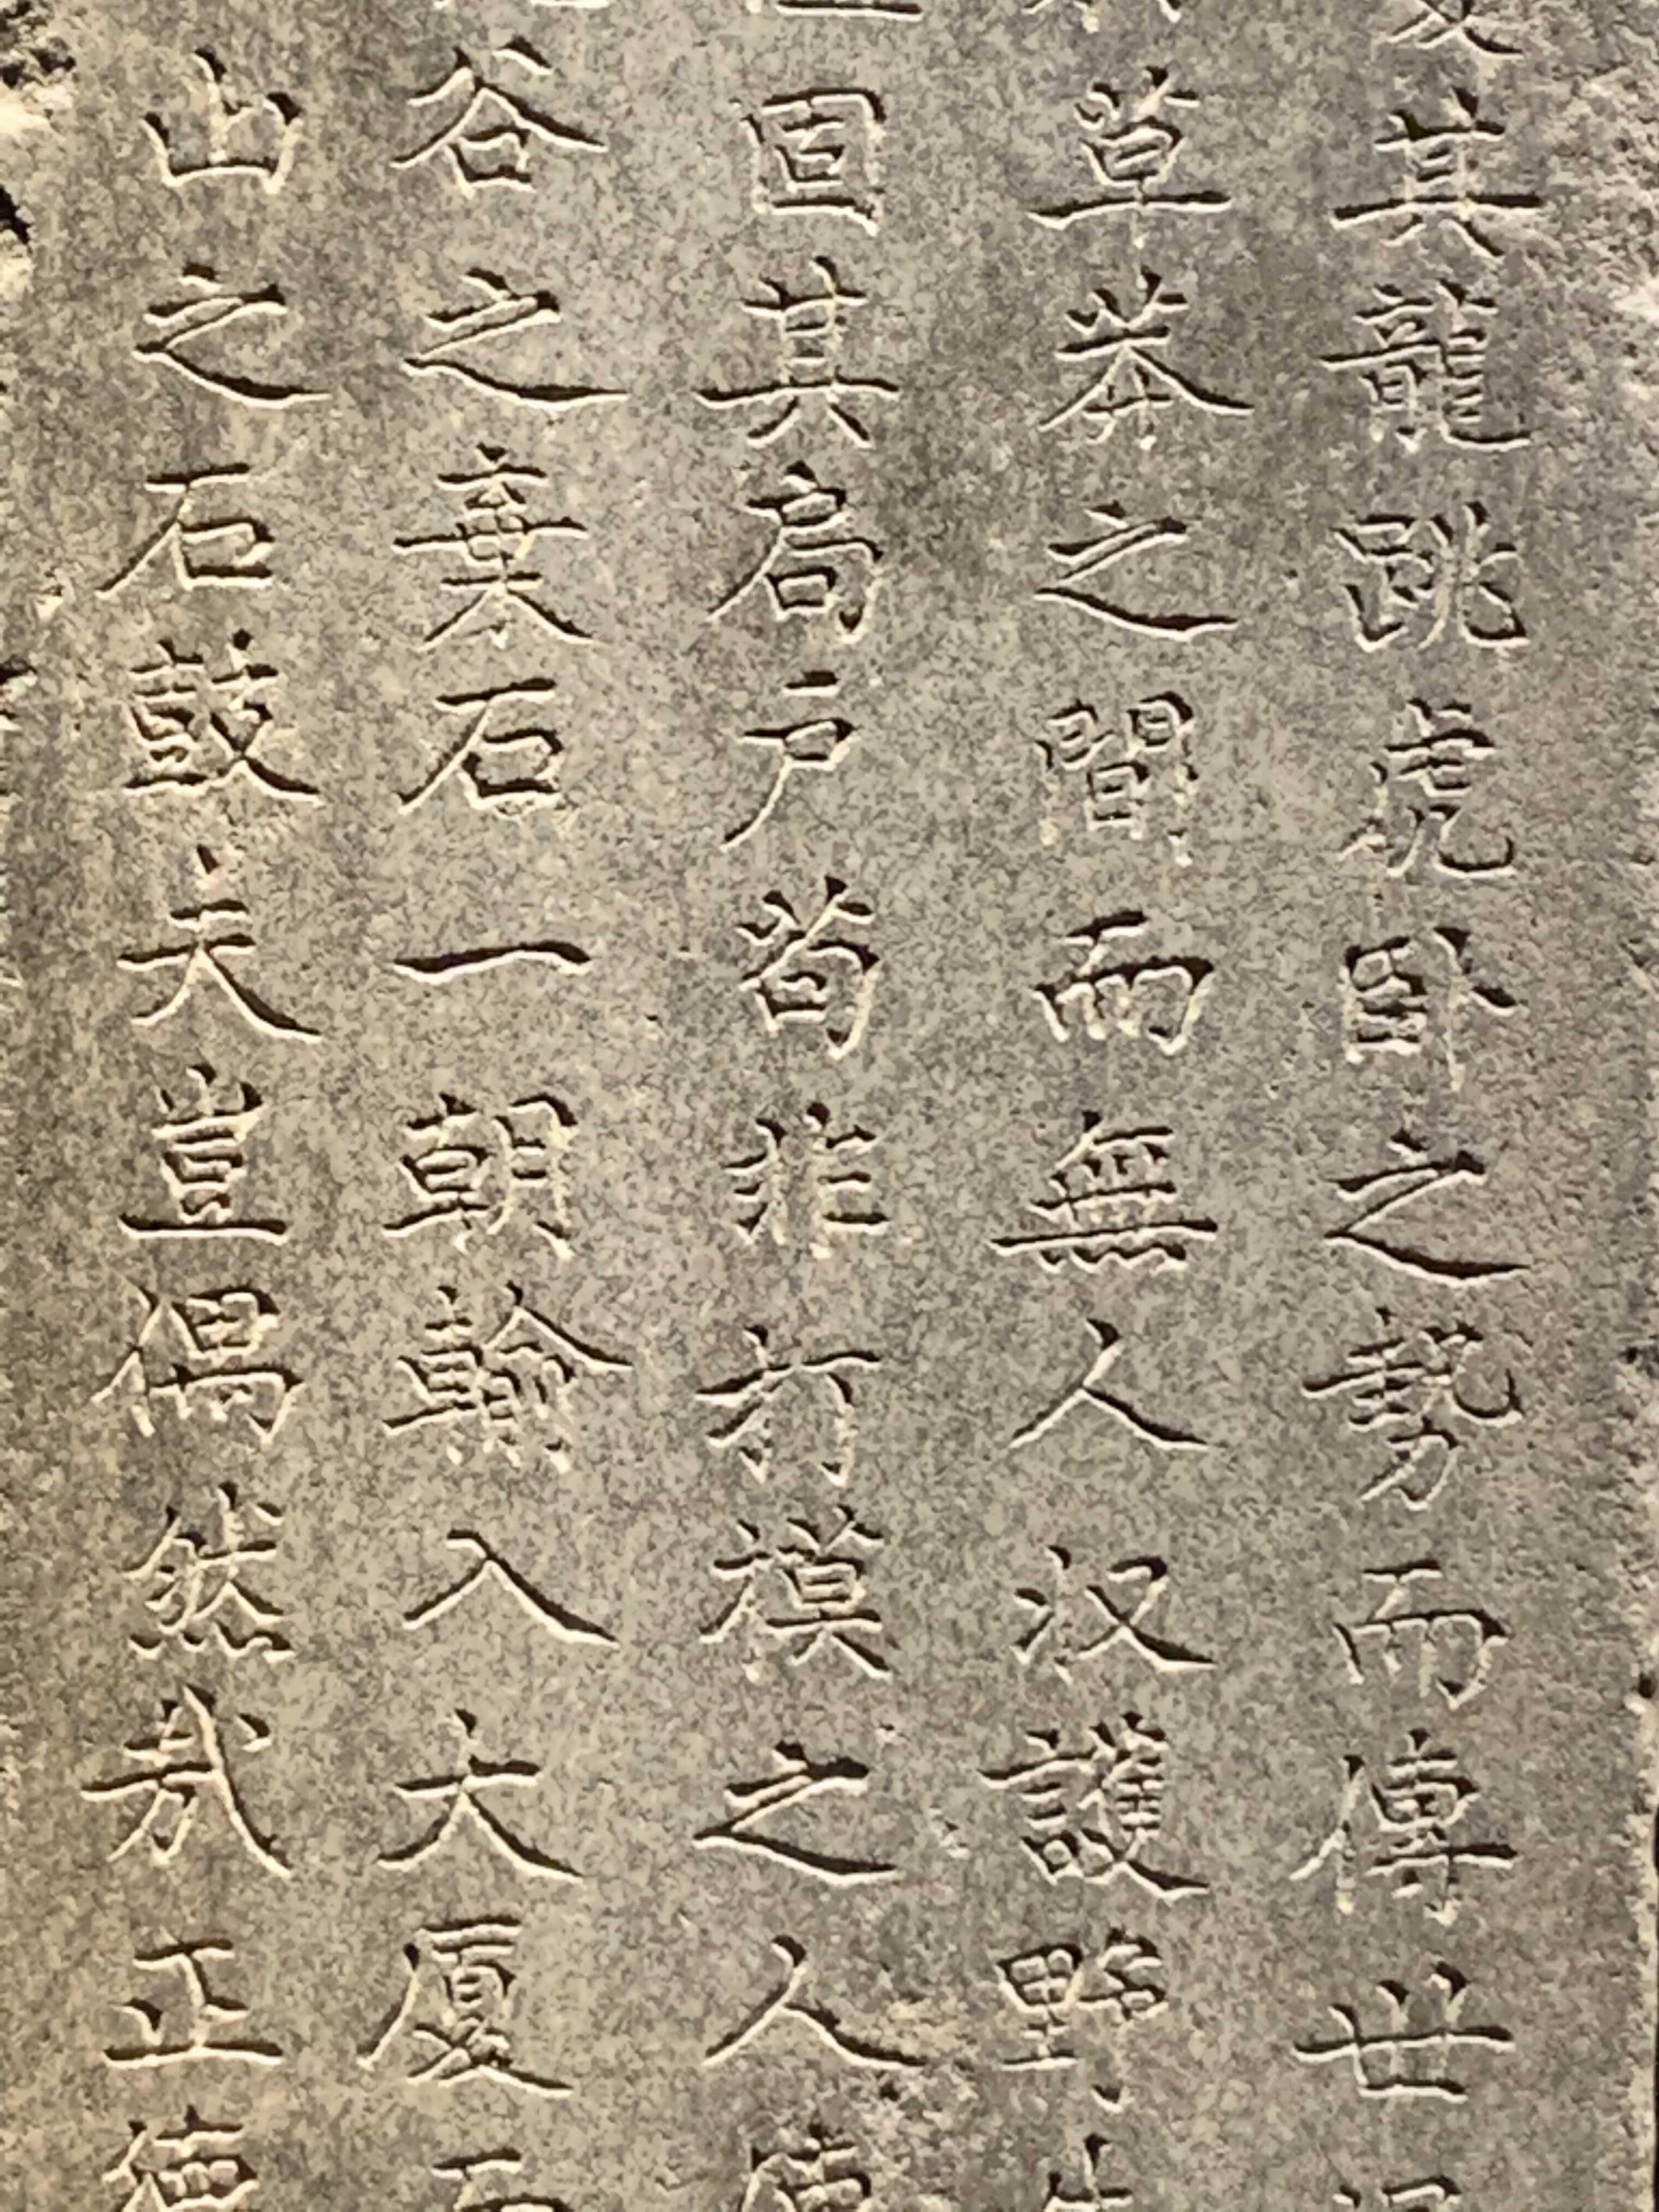 其龍跳虎卧之勢而傳世
草莽之間而無人収護野
固其扃户苟非打摸之人
谷之棄石一朝輸入大厦
山之石鼓夫豈偶然㦲正德